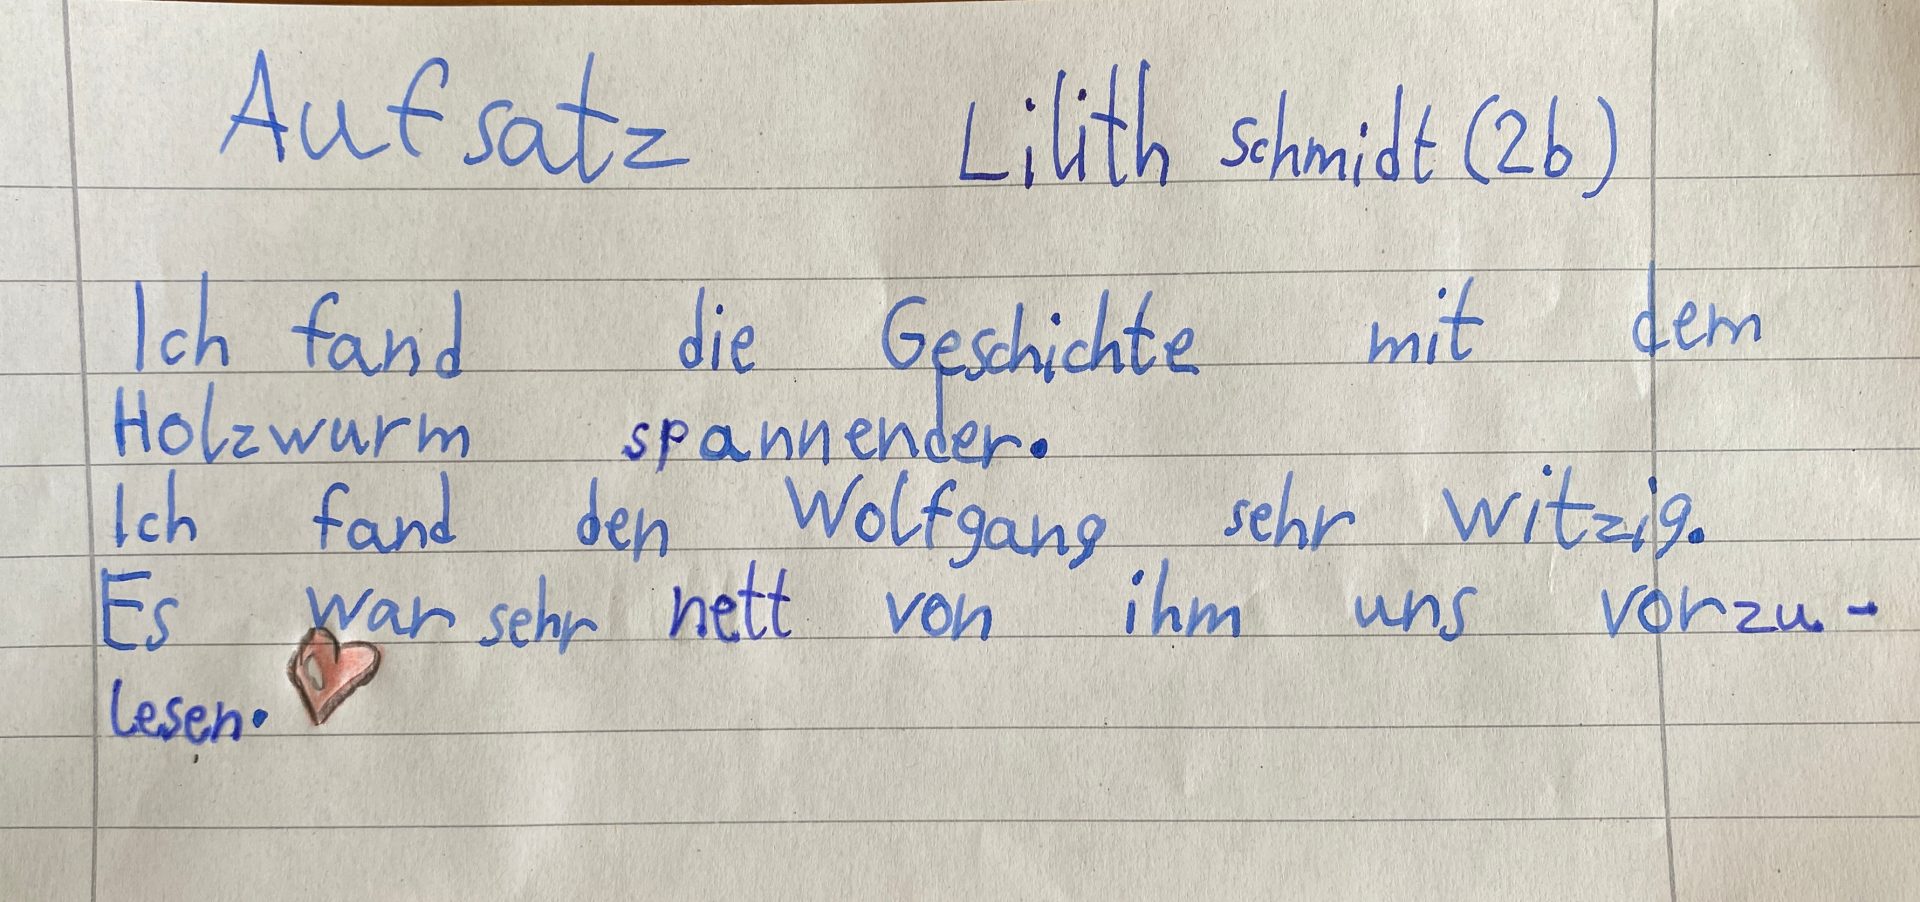 Aufsatz Lilith Schmidt (2b)
Ich fand die Geschichte mit dem
Holzwurm spannender.
Ich fand den Wolfgang sehr witzig.
Es war sehr nett von ihm uns vorzu-
lesen.